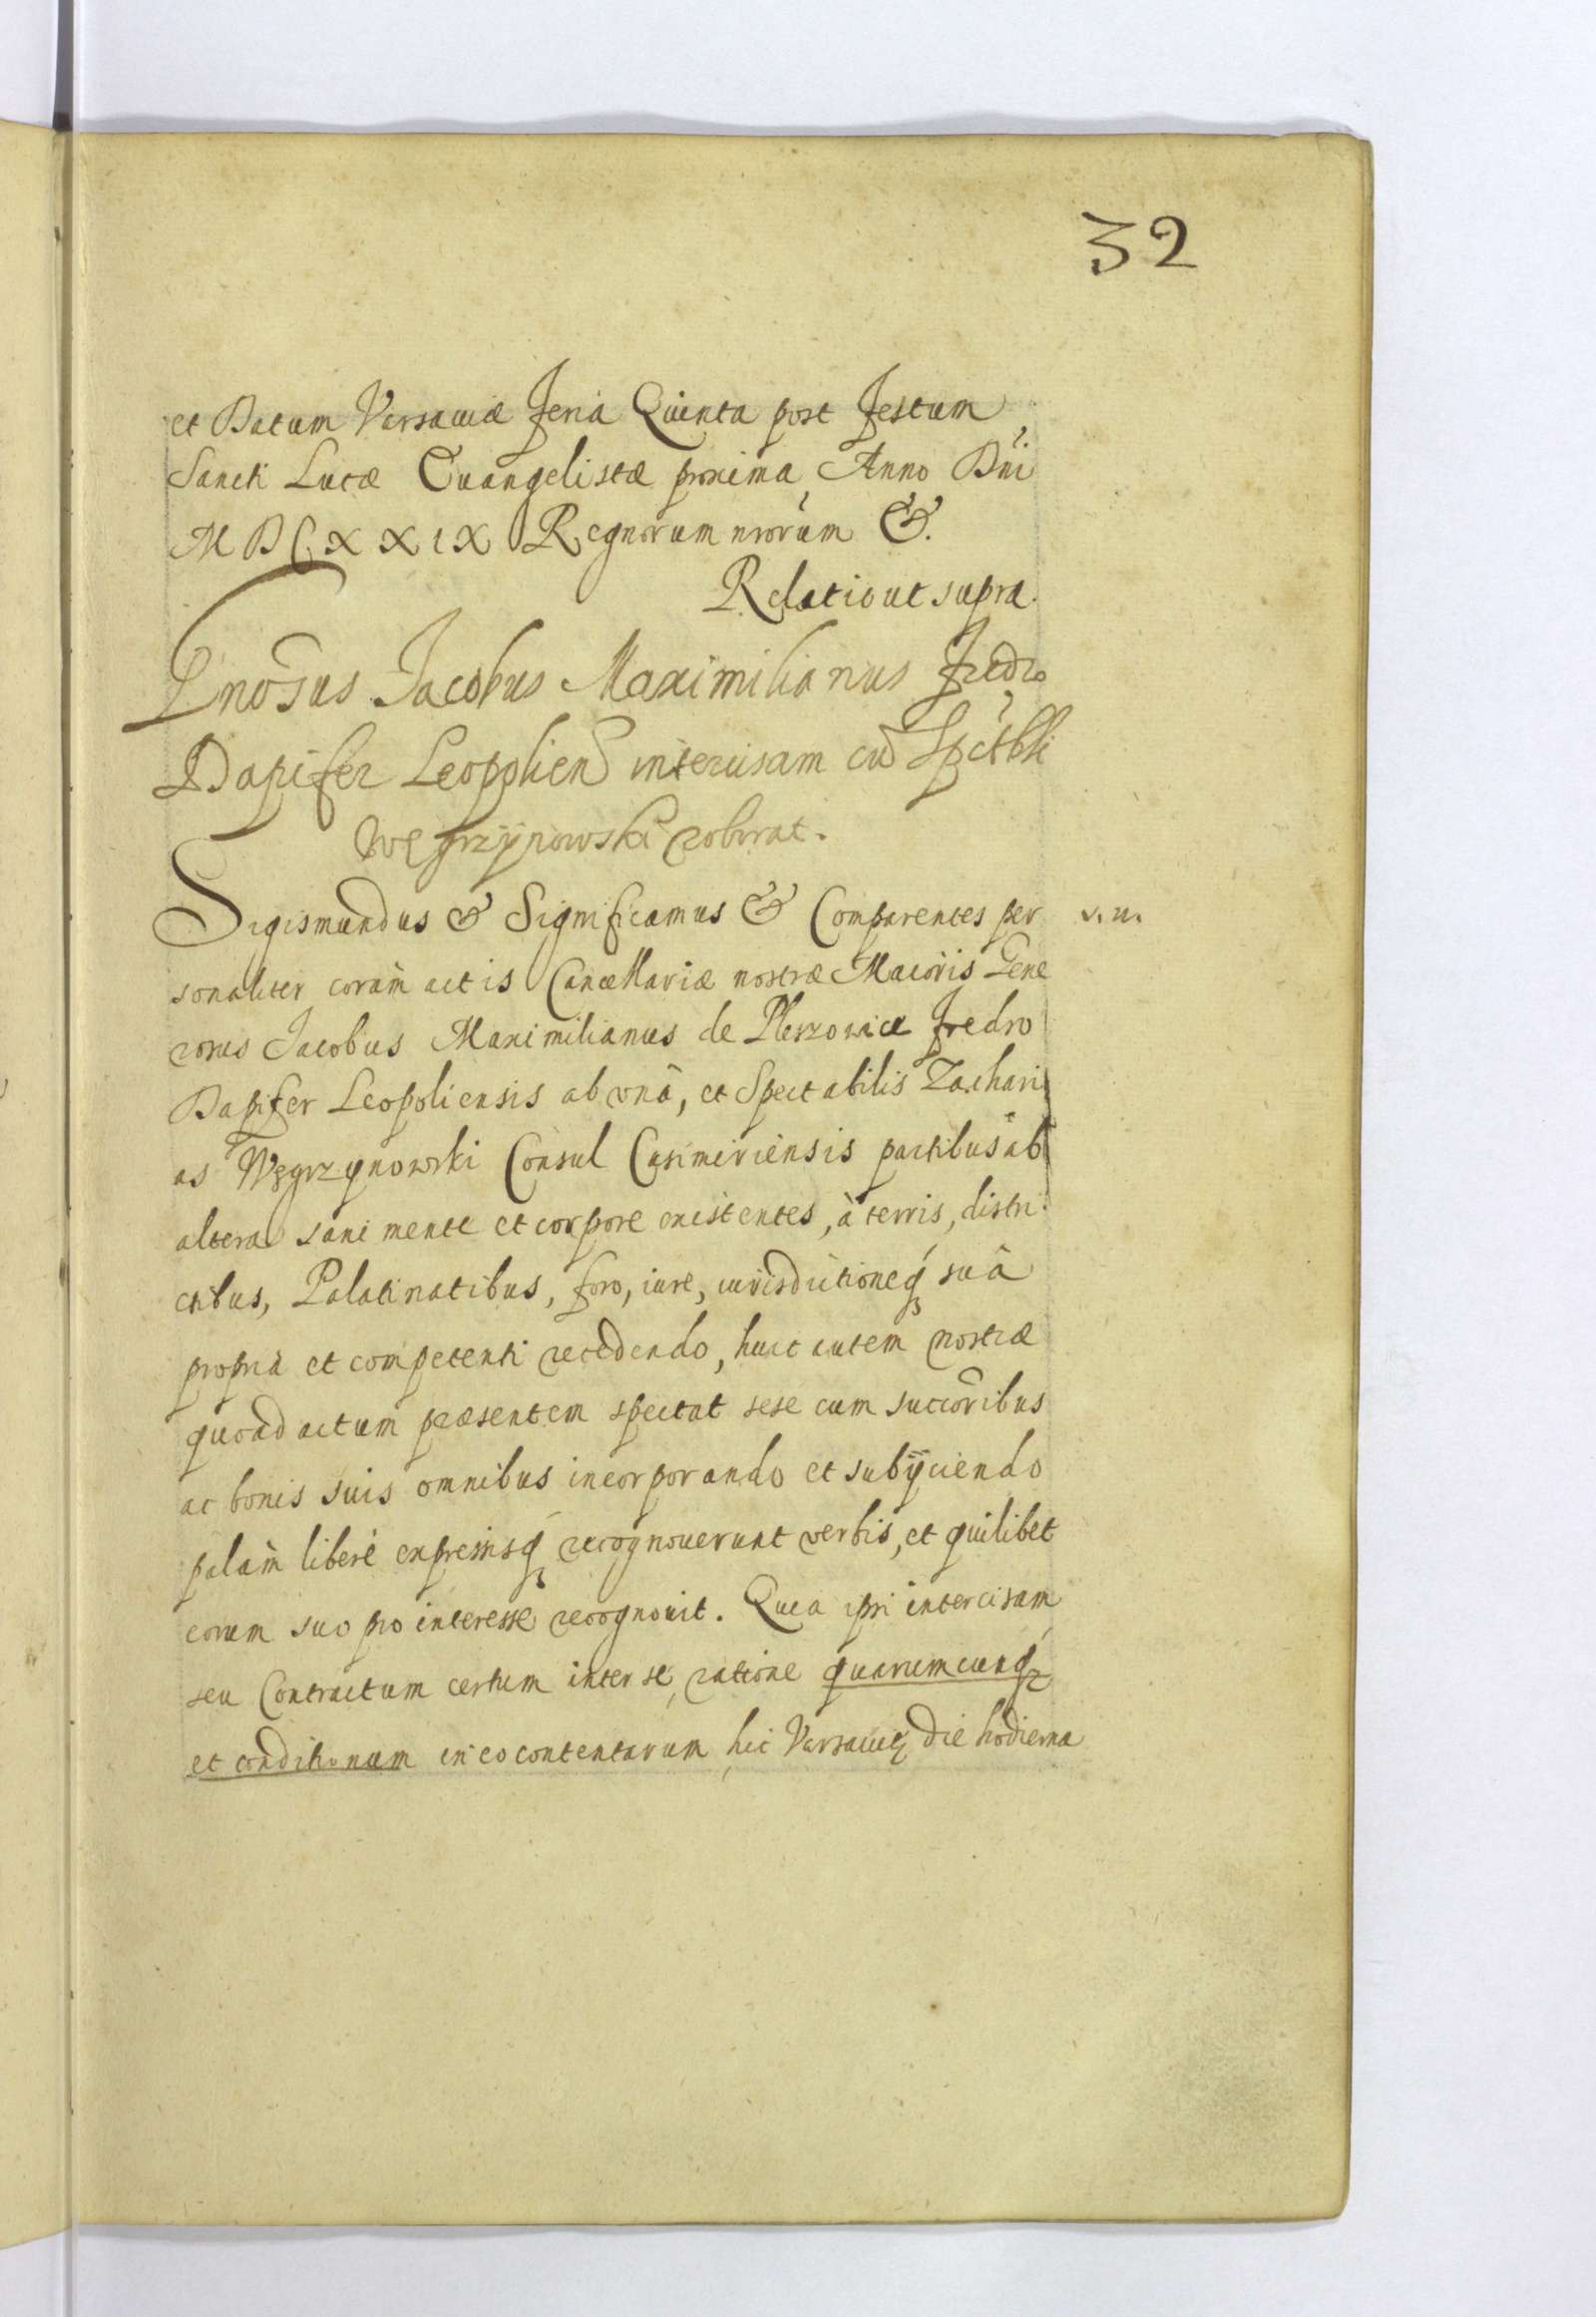 32
et Datum Varsaviæ Feria Quinta post Festum
Sancti Lucæ Euangelistæ proxima Anno Dni
MDCXXIX Regnorum nrorum &.
Relatio ut supra.
Gnosus Jacobus Maximilianus Fredro
Dapifer Leopolien intercisam cu Spctbli
Węgrzynowski roborat.
Sigismundus & Significamus & Comparentes per v. u.
sonaliter coràm actis Cancellariæ nostræ Maioris Gene
rosus Jacobus Maximilianus de Pleszowice Fredro
Dapifer Leopoliensis ab vnâ, et Spectabilis Zachari
as Węgrzynowski Consul Casimiriensis partibus ab
altera sani mente et corpore existentes, à terris, distri
ctibus, Palatinatibus, foro, iure, iurisdictioneq suâ
propria et competenti recedendo, huic autem nostræ
quoad actum præsentem spectat sese cum succoribus
ac bonis suis omnibus incorporando et subijciendo
palàm liberè expressisq recognouerunt verbis, et quilibet
eorum suo pro interesse recognouit. Quia ipsi intercisam
seu Contractum certum inter se, ratione quarumcunq
et conditionum in eo contentarum hic Varsauię die hodierna